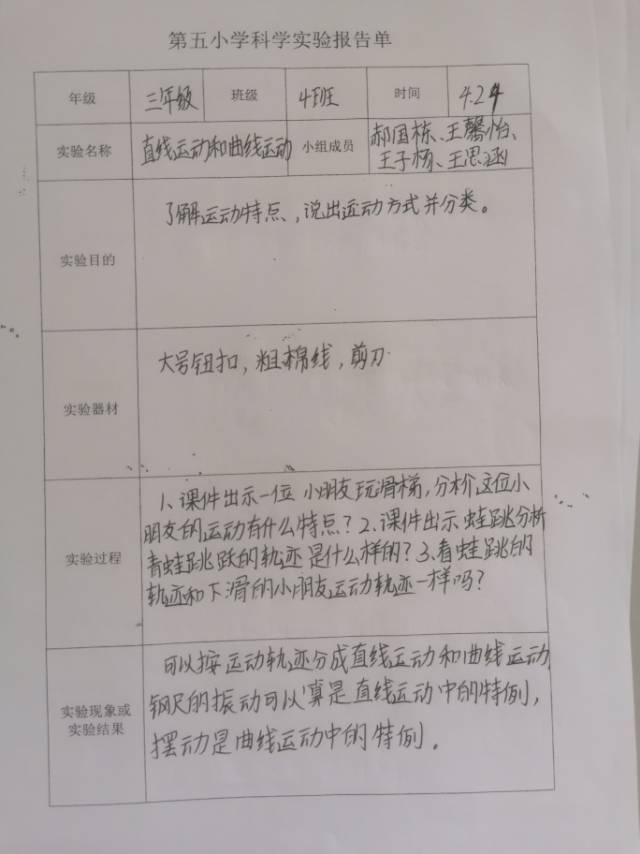 第五小学科学实验报告单
年级 三年级 班级 4班 时间 4.24
实验名称 直线运动和曲线运动 小组成员 郝国栋、王馨怡、
王子杨、王思涵
实验目的 了解运动特点、,说出运动方式并分类。
实验器材 大号钮扣,粗棉线,剪刀
1、课件出示一位 小朋友玩滑梯,分析这位小
朋友的运动有什么特点?2、课件出示 蛙跳分析
实验过程 青蛙跳跃的轨迹 是什么样的?3、看蛙跳的
轨迹和下滑的小朋友运动轨迹一样吗?
可以按运动轨迹分成直线运动和曲线运动
钢尺的振动可以算是直线运动中的特例,
实验现象或
实验结果
摆动是曲线运动中的特例。